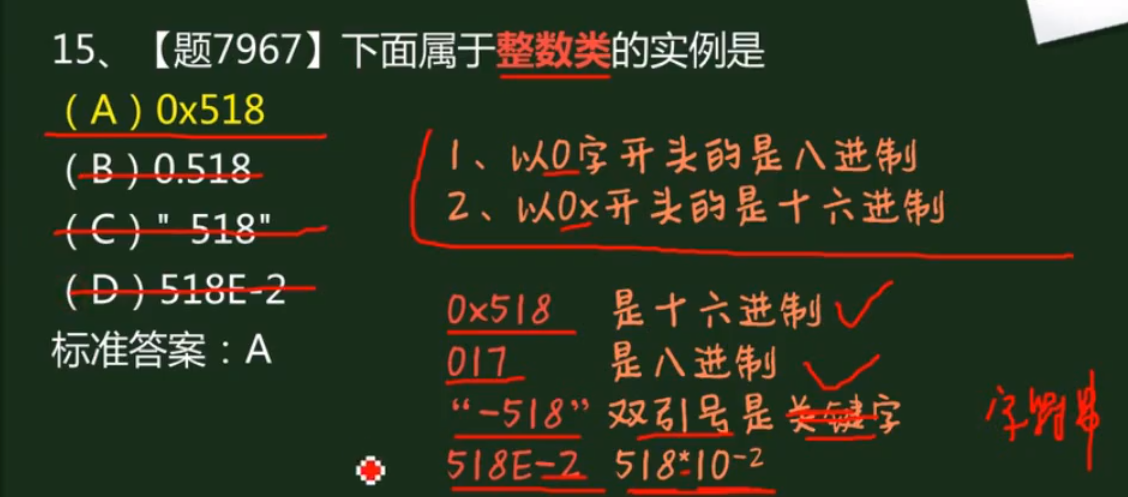 15、【题7967】下面属于整数类的实例是
（A）0x518
（B）0.518
（C）" 518"
（D）518E-2
标准答案：A
1、以0字开头的是八进制
2、以0x开头的是十六进制
0x518 是十六进制
017 是八进制
“-518” 双引号是关键字 字符串
518E-2 518*10-2